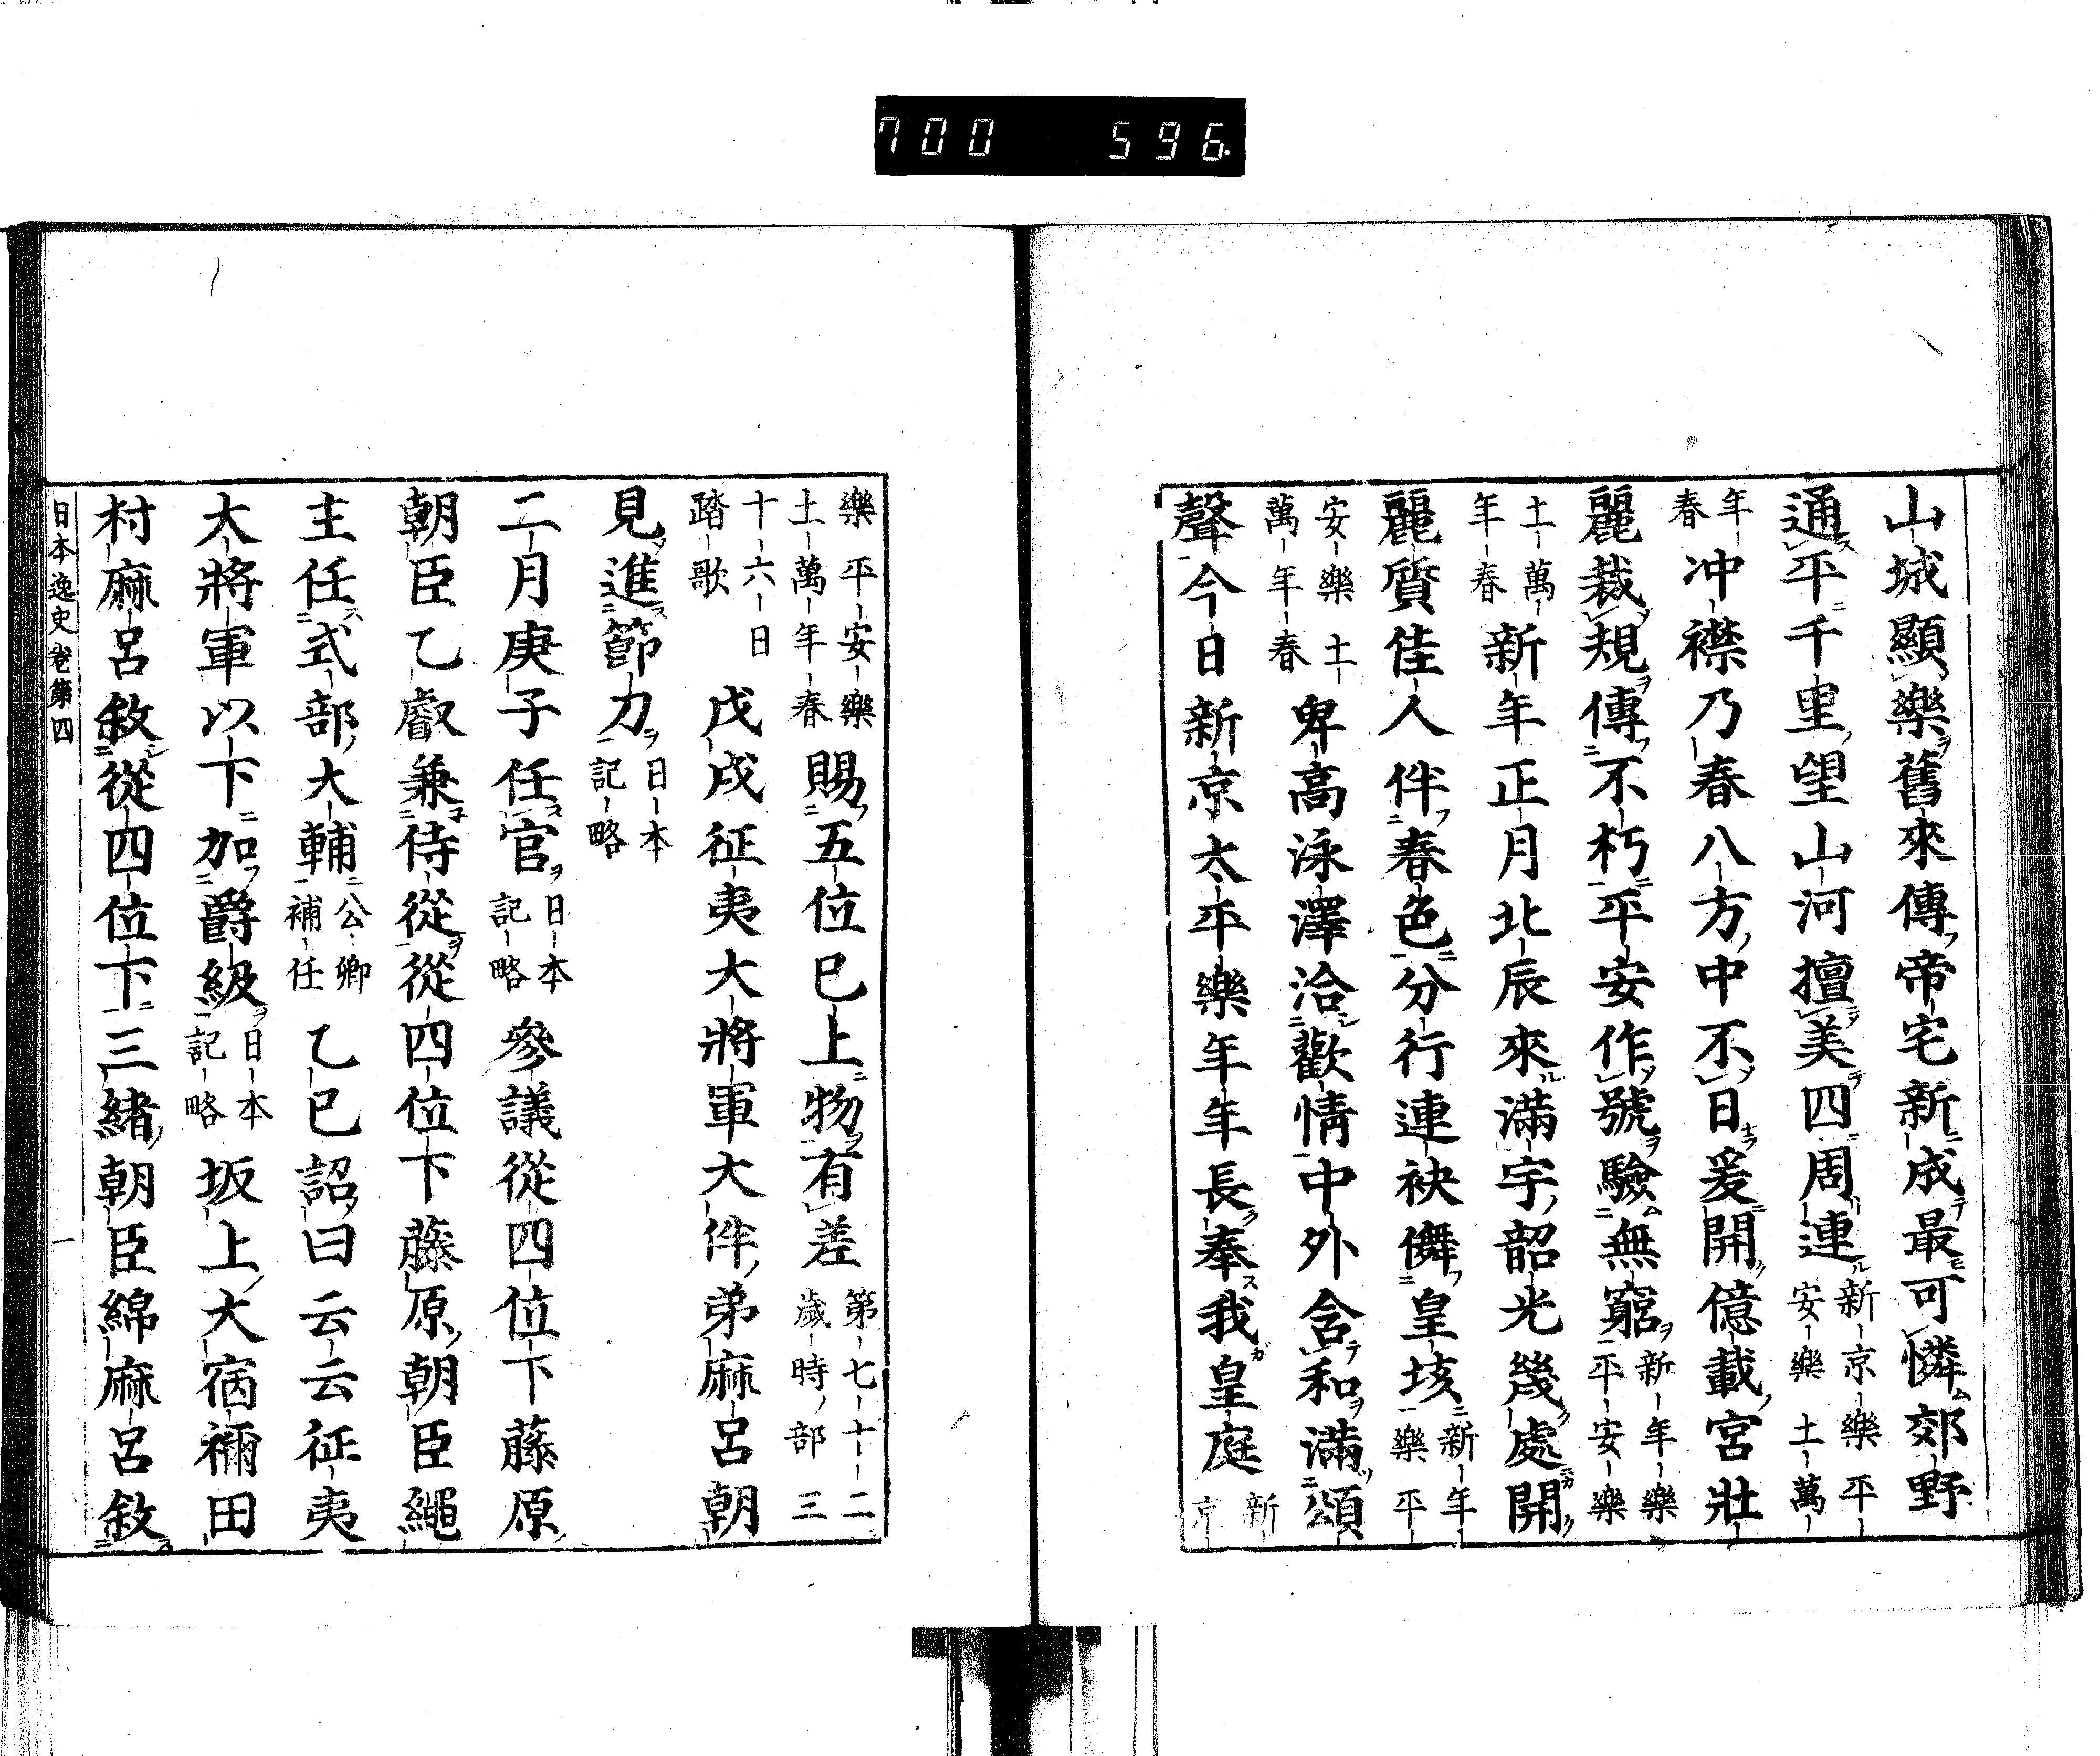 700 596
山城顯樂舊來傳帝宅新成最可憐郊野
通平千里望山河擅美四周連新京樂平安樂土萬
年春冲襟乃春八方中不日爰開億載宮壯
麗裁規傳不朽平安作號驗無窮新年樂平安樂
土萬年春新年正月北辰來滿宇韶光幾處開
麗質佳人伴春色分行連袂儛皇垓新年樂平
安樂土萬年春卑高泳澤洽歡情中外含和滿頌
聲今日新京太平樂年年長奉我皇庭新京
樂平安樂土萬年春賜五位已上物有差第七十二歲時部三
十六日踏歌戊戌征夷大將軍大伴弟麻呂朝
見進節刀日本記略
二月庚子任官日本記略參議從四位下藤原
朝臣乙叡兼侍從從四位下藤原朝臣繩
主任式部大輔公卿補任乙巳詔曰云云征夷
大將軍以下加爵級日本記略坂上大宿禰田
村麻呂敘從四位下三緒朝臣綿麻呂敘
日本逸史卷第四 一